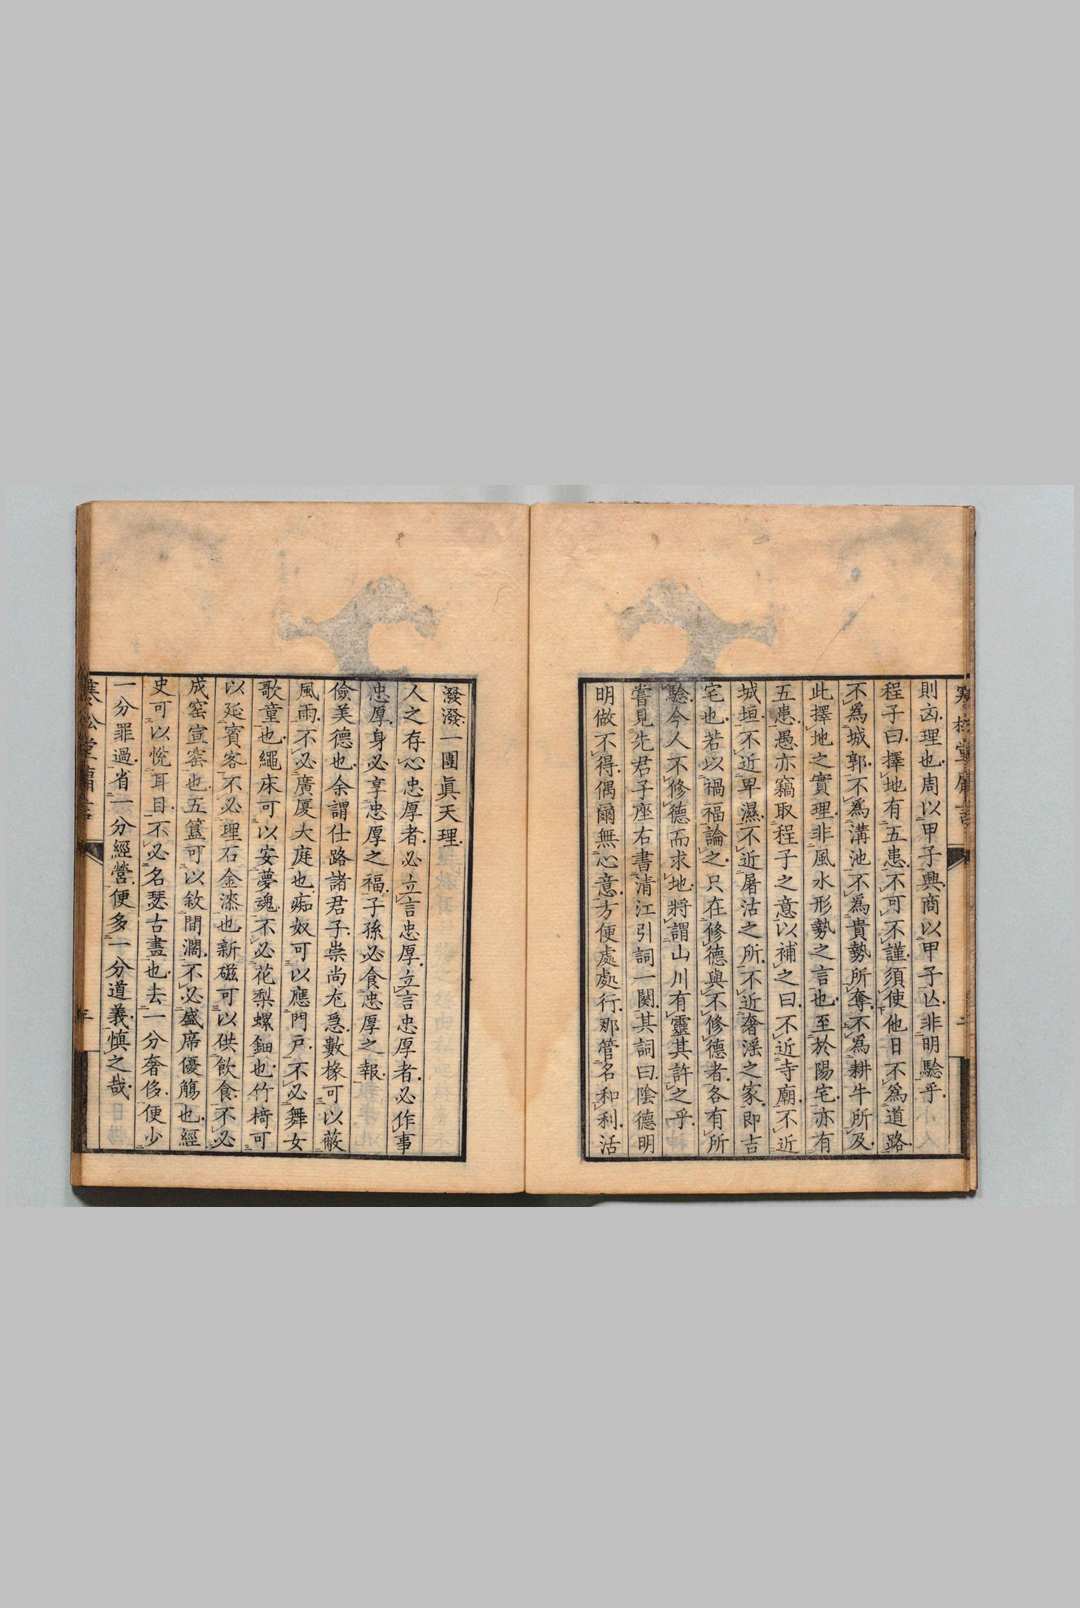 則凶理也周以甲子興商以甲子亾非明驗乎
程子曰擇地有五患不可不謹須使他日不爲道路
不爲城郭不爲溝池不爲貴勢所奪不爲耕牛所及
此擇地之實理非風水形勢之言也至於陽宅亦有
五患愚亦竊取程子之意以補之曰不近寺廟不近
城垣不近卑濕不近屠沽之所不近奢滛之家即吉
宅也若以禍福論之只在修德與不修德者各有所
驗今人不修德而求地將謂山川有靈其許之乎
嘗見先君子座右書清江引詞一闋其詞曰陰德明
明做不得偶爾無心意方便處處行那管名和利活
潑潑一團眞天理
人之存心忠厚者必立言忠厚立言忠厚者必作事
忠厚身必享忠厚之福子孫必食忠厚之報
儉美德也余謂仕路諸君子崇尚尤急數椽可以蔽
風雨不必廣厦大庭也痴奴可以應門戶不必舞女
歌童也繩床可以安夢魂不必花梨螺鈿也竹椅可
以延賓客不必理石金漆也新磁可以供飲食不必
成窑宣窑也五簋可以敘間濶不必盛席優觴也經
史可以悅耳目不必名琴古畫也去一分奢侈便少
一分罪過省一分經營便多一分道義愼之哉
寒松堂庸言